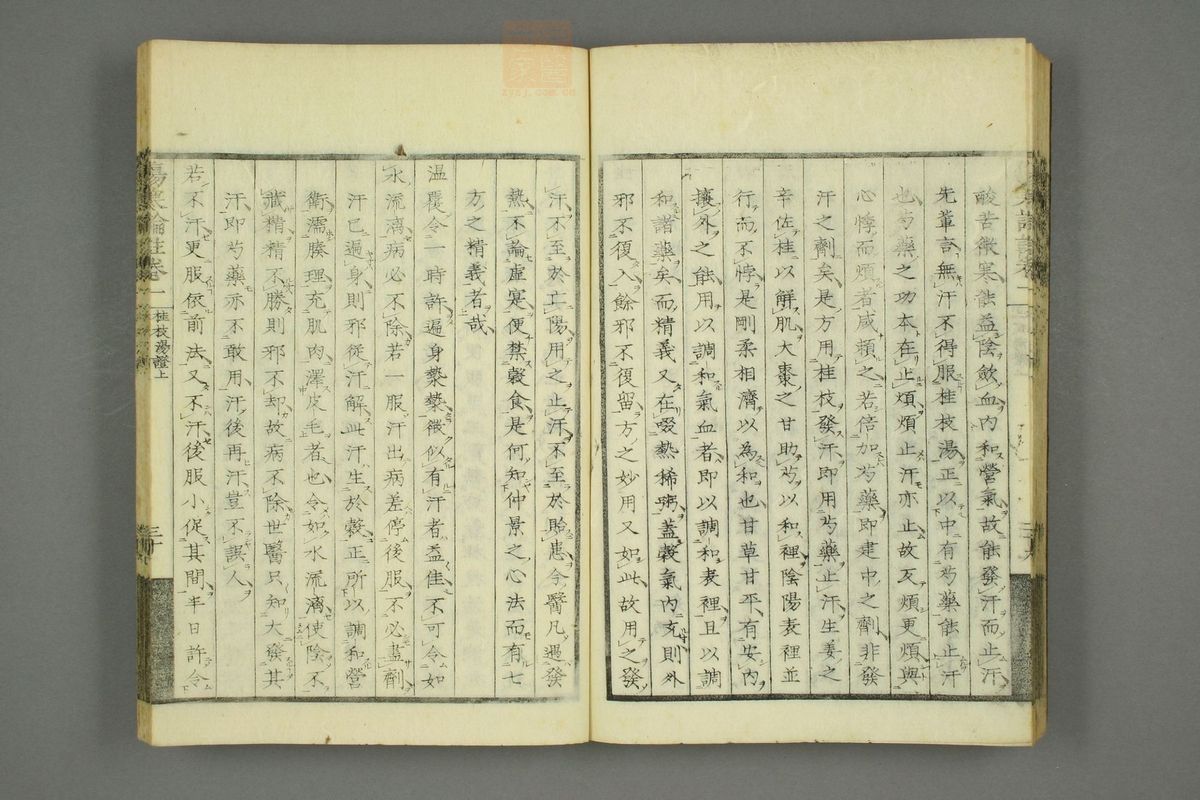 酸苦微寒能益陰歛血內和營氣故能發汗而止汗
先輩言無汗不得服桂枝湯正以中有芍藥能止汗
也芍藥之功本在止煩煩止汗亦止故反煩更煩與
心悸而煩者咸賴之若倍加芍藥即建中之劑非發
汗之劑矣是方用桂枝發汗即用芍藥止汗生姜之
辛佐桂以解肌大棗之甘助芍以和裡陰陽表裡並
行而不悖是剛柔相濟以為和也甘草甘平有安內
攘外之能用以調和氣血者即以調和表裡且以調
和諸藥矣而精義又在啜熱稀粥蓋穀氣內充則外
邪不復入餘邪不復留方之妙用又如此故用之發
汗不至於亡陽用之止汗不至於貽患今醫凡遇發
熱不論虛寔便禁穀食是何知仲景之心法而有七
方之精義者哉
温覆令一時許遍身漐漐微似有汗者益佳不可令如
水流漓病必不除若一服汗出病差停後服不必盡劑
汗已遍身則邪從汗解此汗生於穀正所以調和營
衛濡腠理充肌肉澤皮毛者也令如水流漓使陰不
藏精精不勝則邪不却故病不除世醫只知大發其
汗即芍藥亦不敢用汗後再汗豈不誤人
若不汗更服依前法又不汗後服小促其間半日許令
傷寒論注卷一
桂枝湯證上
三十